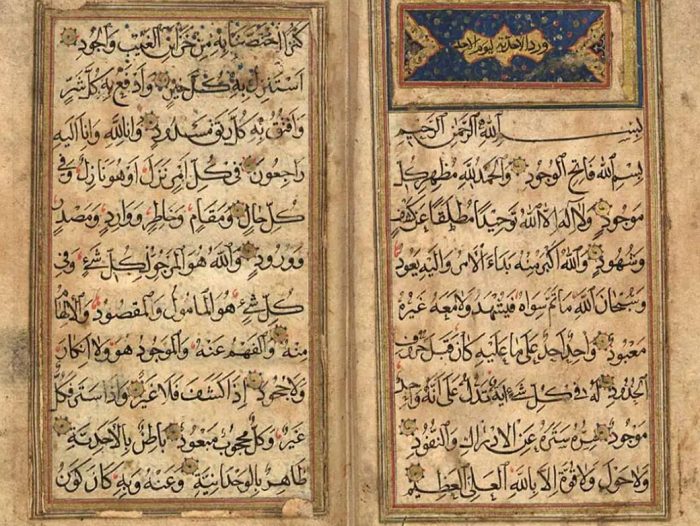 ورد الأحدية ليوم الأحد
بسم الله الرحمن الرحيم
بسم الله فاتح الوجود والحمد لله مظهر كل
موجود ولا اله الا الله توحيدا مطلقا عن كشف
وشهود والله اكبر منه بداء الامر واليه يعود
وسبحان الله ما ثم سواه فيشهد ولا معه غيره
معبود واحد احد على ما عليه كان قبل حروف
الحدود له في كل شيء اية تدل على انه واحد
موجود سره ستره عن الادراك والنفود
ولا حول ولا قوة الا بالله العلي العظيم
كنز اختصنا به من خزائن الغيب والجود
استنزل به كل خير وادفع به كل شر
وافتق به كل رتق مسدود وانا لله وانا اليه
راجعون في كل امر نزل او هو نازل وفي
كل حال ومقام وخاطر ووارد ومصدر
وورود والله هو المرجو لكل شيء وفي
كل شيء هو المامول والمقصود والالهام
منه والفهم عنه والموجود هو ولا انكار
ولا جحود اذا كشف فلا غير واذا ستر فكل
غير وكل محجوب مبعود باطن بالاحدية
ظاهر بالوحدانية وعنه وبه كان كون